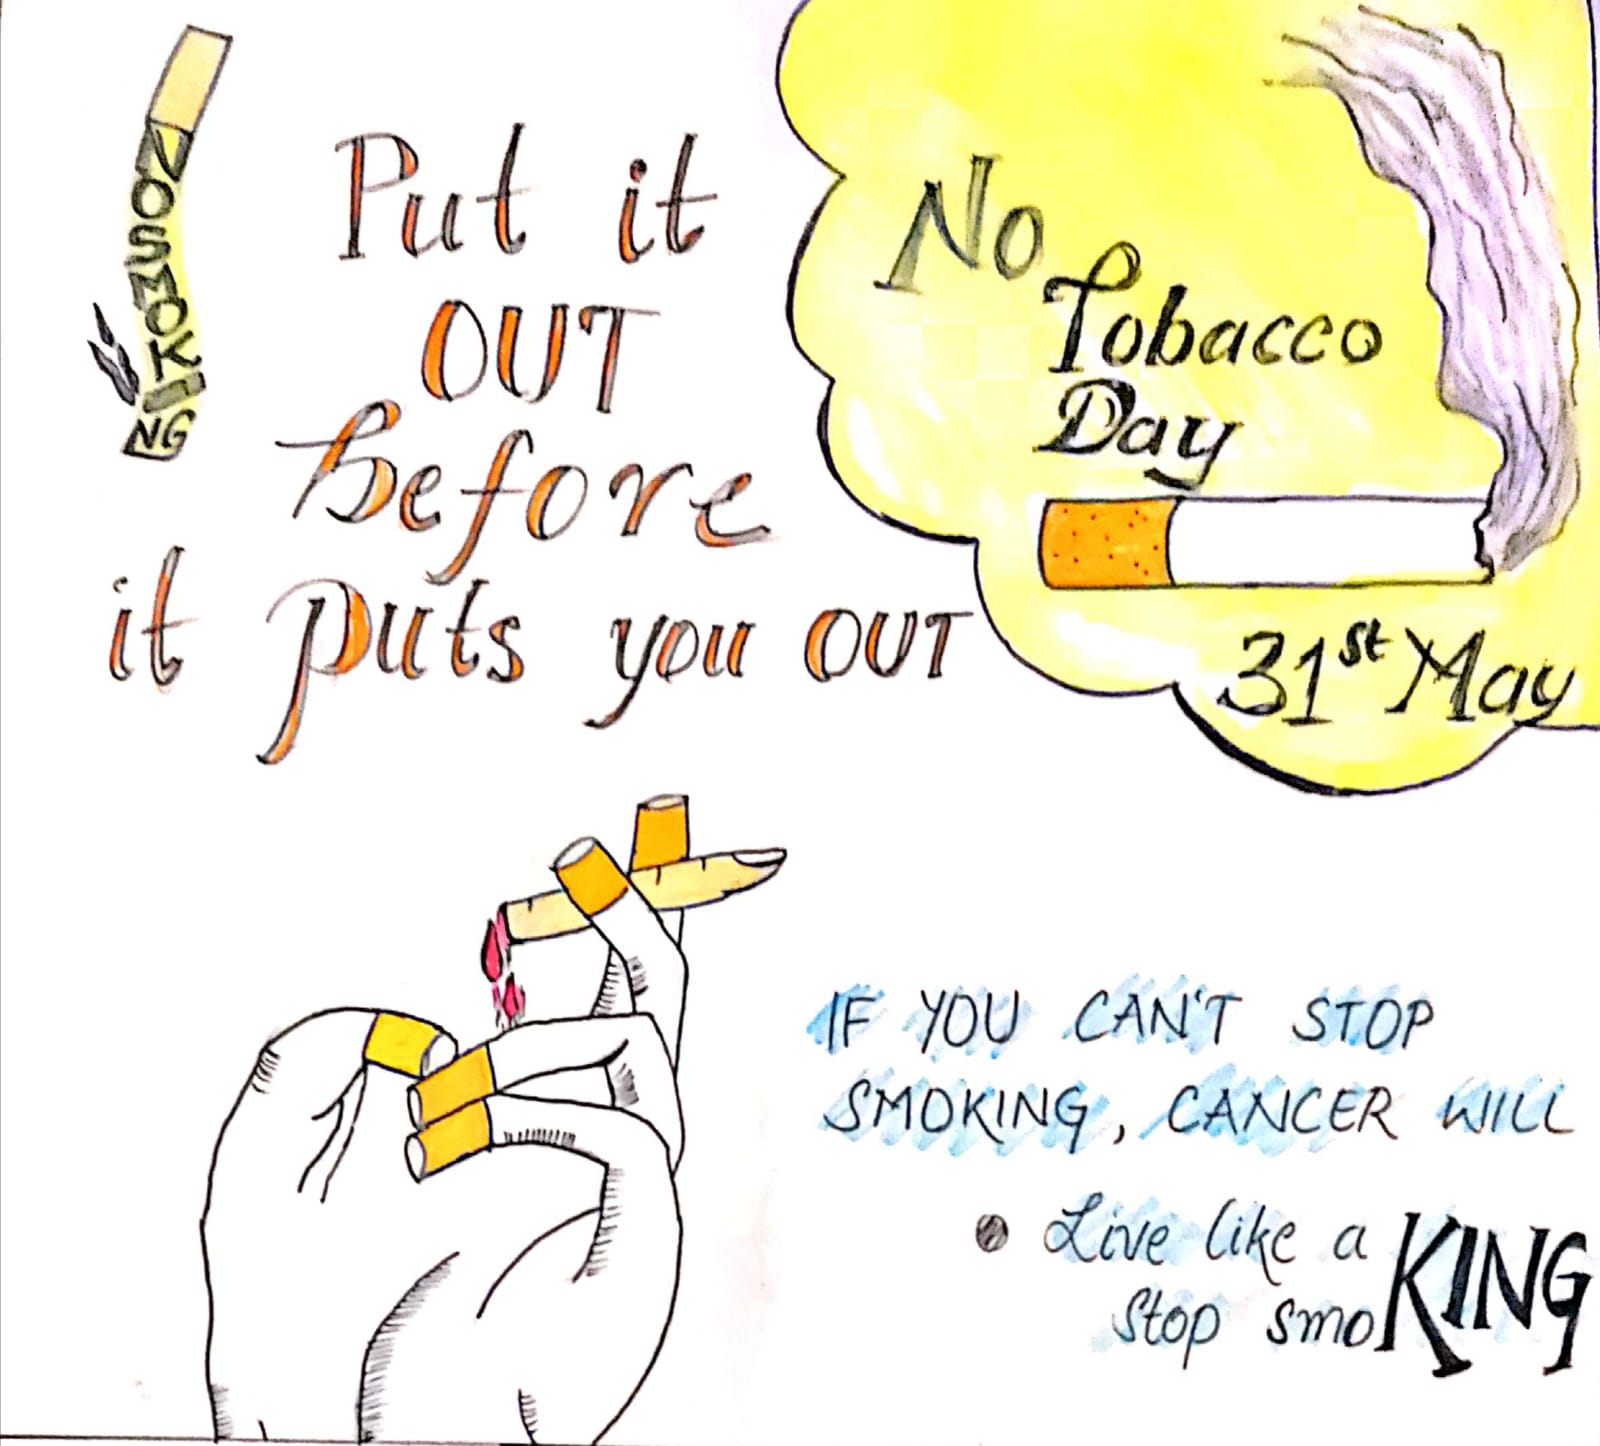 NO SMOKING
Put it
OUT
before
it puts you OUT
No
Tobacco
Day
31st May
IF YOU CAN'T STOP
SMOKING, CANCER WILL
• Live like a KING
Stop smoKING